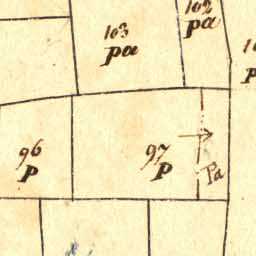 102
pa
103
pa
96
p
97
p
Pa